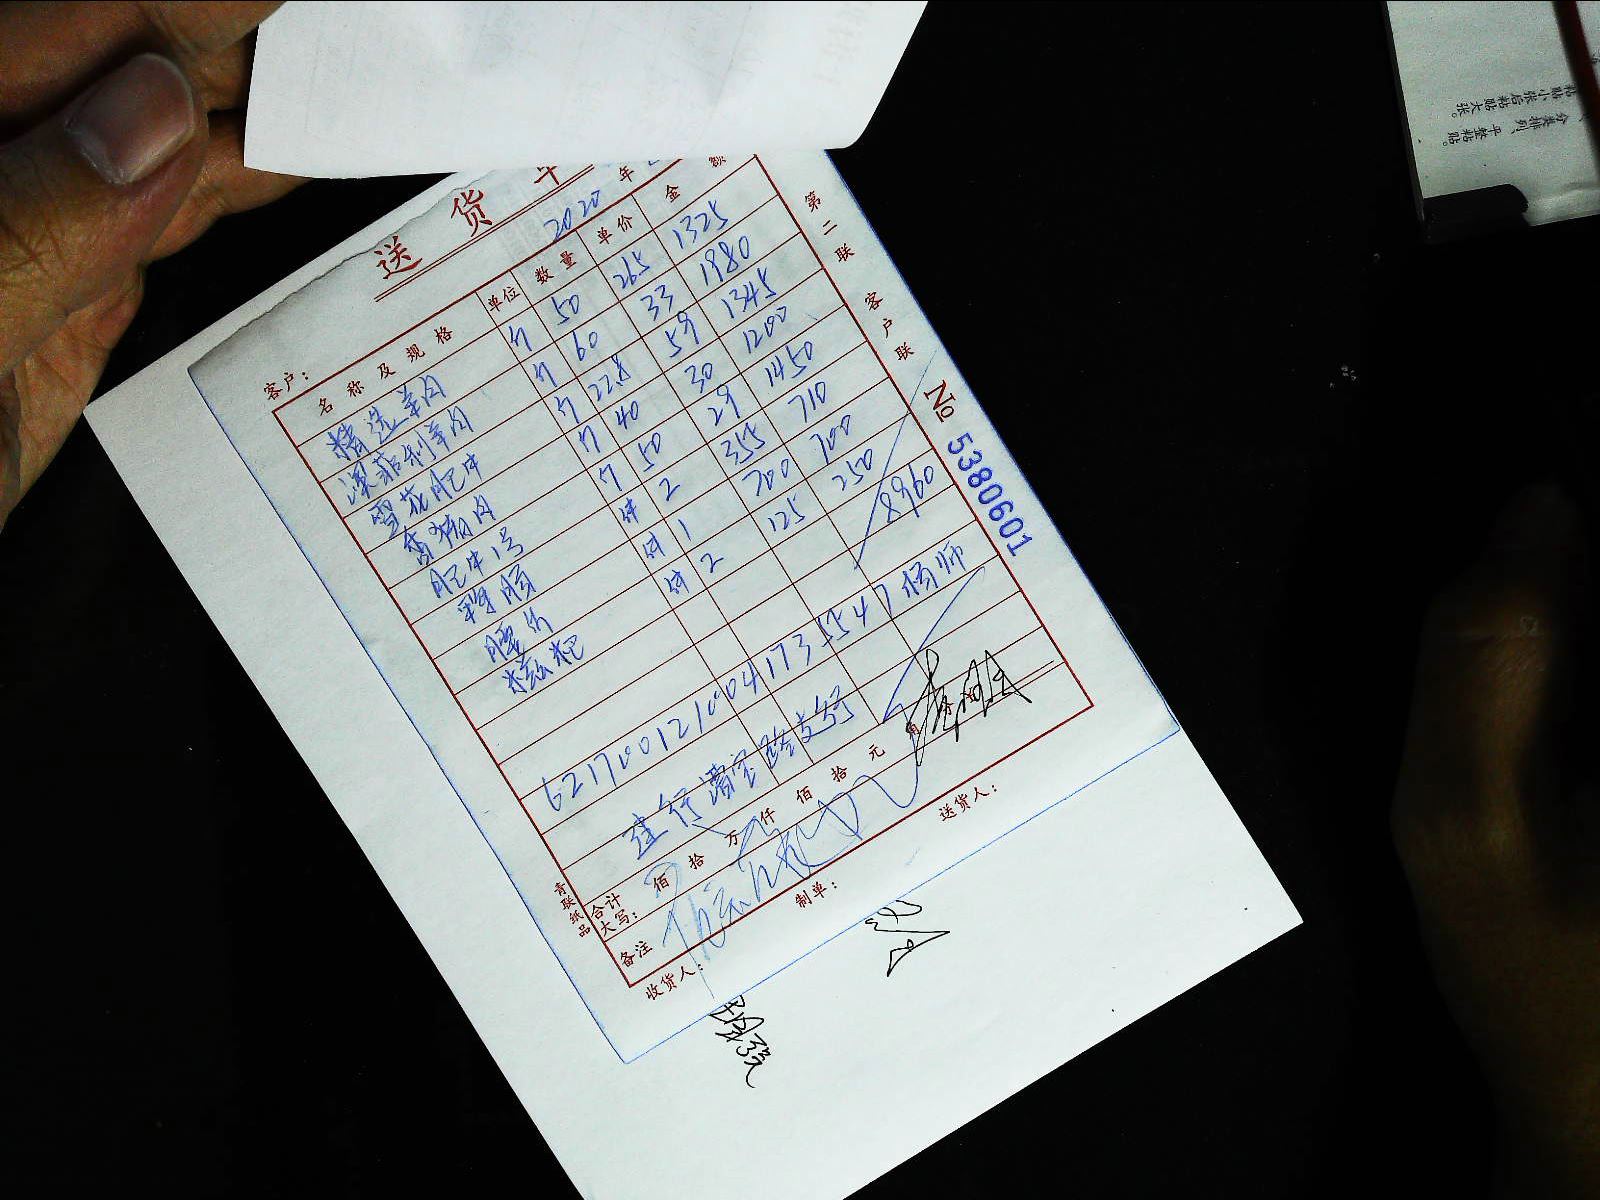 送 货 单
2020 年
客户：
名 称 及 规 格 单位 数 量 单 价 金 额
精选羊肉 斤 50 265 1325
澳菲利羊肉 斤 60 33 1980
雪花肥牛 斤 22.8 59 1345
香猪肉 斤 40 30 1200
肥牛1号 斤 50 29 1450
件 2 355 710
腰片 件 1 700 700
糍粑 件 2 125 250
8960
6217001210041735547 杨师
建行 支行
合计大写： 佰 拾 万 仟 佰 拾 元 角
备注
收货人： 制单： 送货人：
第二联 客户联
№ 5380601
青联纸品
粘贴小张后粘贴大张。
分类排列、平整粘贴。